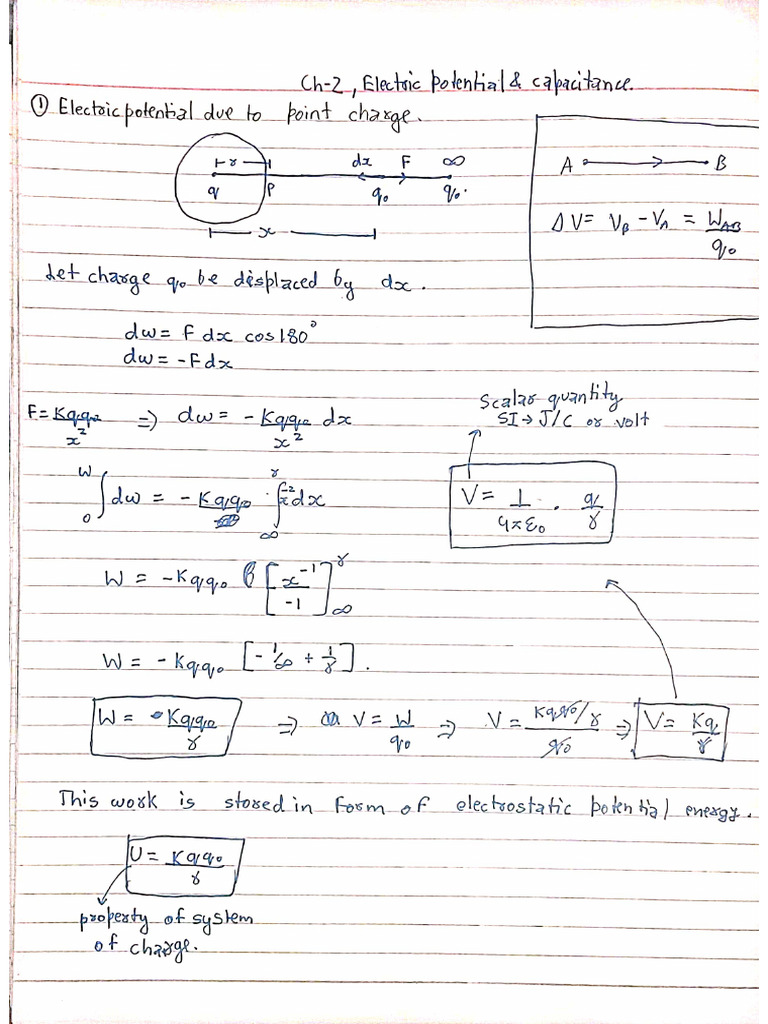 Ch-2, Electric potential & capacitance.
① Electric potential due to point charge.
r dx F ∞
q P q₀ q₀.
x
A B
ΔV = V_B - V_A = W_AB/q₀
Let charge q₀ be displaced by dx.
dw = F dx cos180°
dw = -Fdx
F = Kqq₀/x² ⇒ dw = -Kqq₀/x² dx
Scalar quantity
SI → J/C or volt
∫₀^W dw = -Kqq₀ . ∫_∞^r x⁻² dx
V = 1/4πε₀ . q/r
W = -Kqq₀ [x⁻¹/-1]_∞^r
W = -Kqq₀ [-1/∞ + 1/r].
W = Kqq₀/r ⇒ V = W/q₀ ⇒ V = Kqq₀/r/q₀ ⇒ V = Kq/r
This work is stored in form of electrostatic potential energy.
U = Kqq₀/r
property of system
of charge.